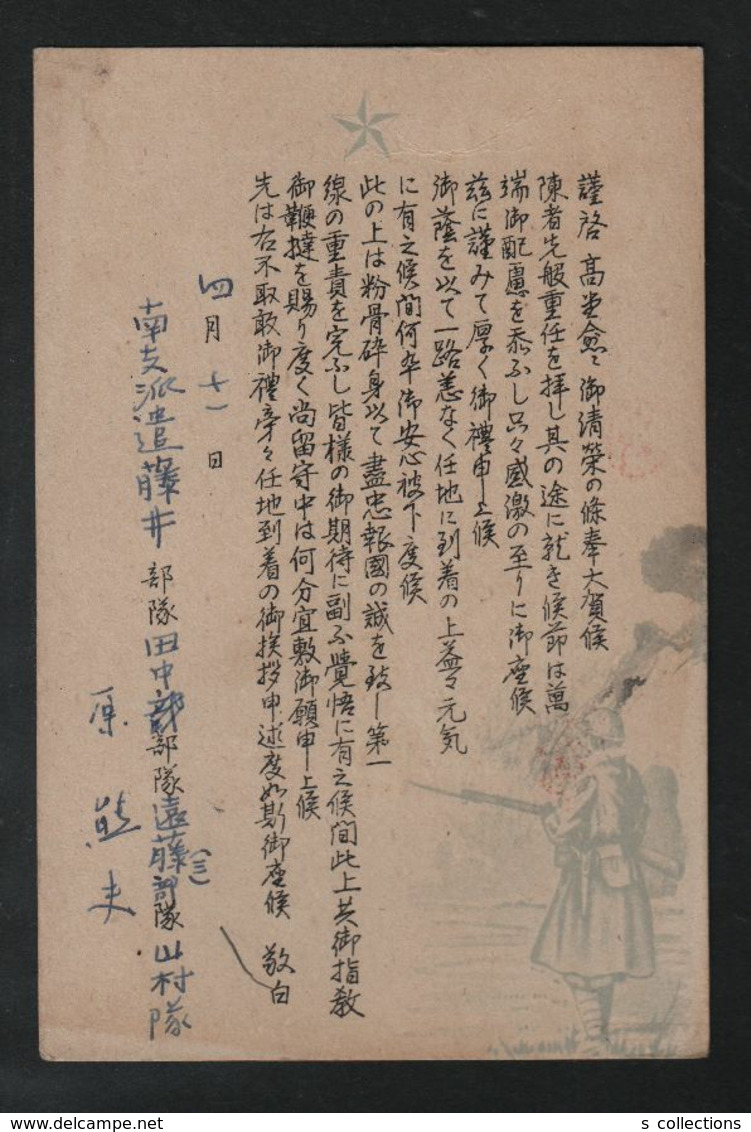 謹啓 高堂愈々御清榮の條奉大賀候
陳者先般重任を拝し其の途に就き候節は萬
端御配慮を忝ふし只々感激の至りに御座候
茲に謹みて厚く御禮申上候
御蔭を以て一路恙なく任地に到着の上益々元気
に有之候間何卒御安心被下度候
此の上は粉骨砕身以て盡忠報國の誠を致し第一
線の重責を完ふし皆様の御期待に副ふ覺悟に有之候間此上共御指教
御鞭撻を賜り度く尚留守中は何分宜敷御願申上候
先は右不取敢御禮旁々任地到着の御挨拶申述度如斯御座候 敬白
四月十一日
南支派遣藤井部隊田中部部隊遠藤(三)部隊山村隊
原 熊夫
s collections